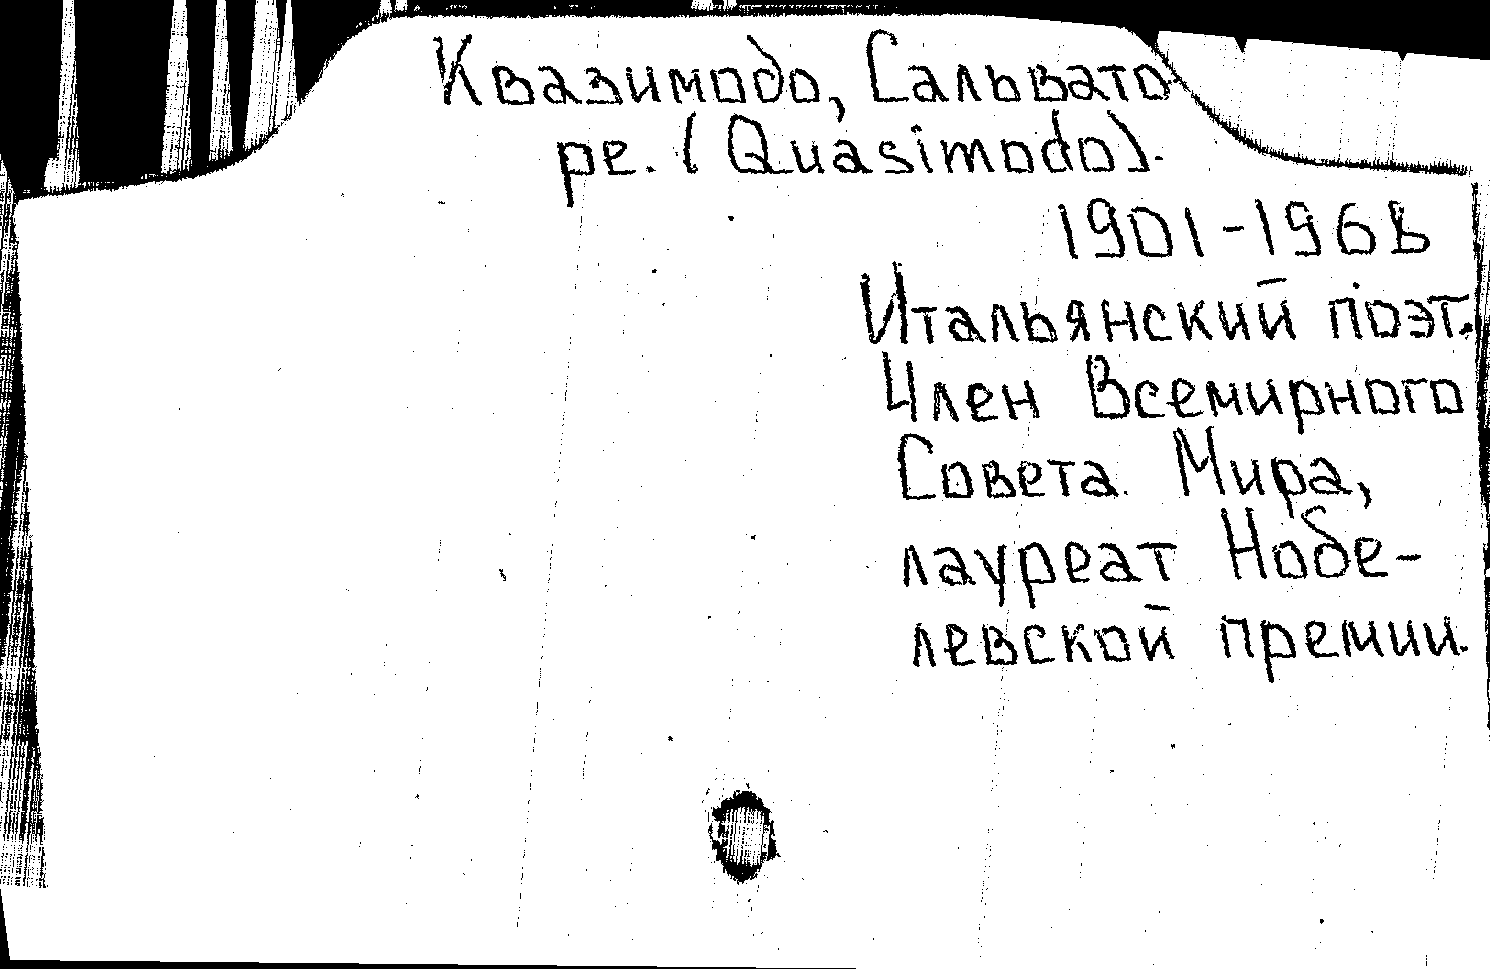 Квазимодо, Сальвато-
ре. (Quasimodo).
1901-1968
Итальянский поэт.
Член Всемирного
Совета Мира,
лауреат Нобе-
левской премии.